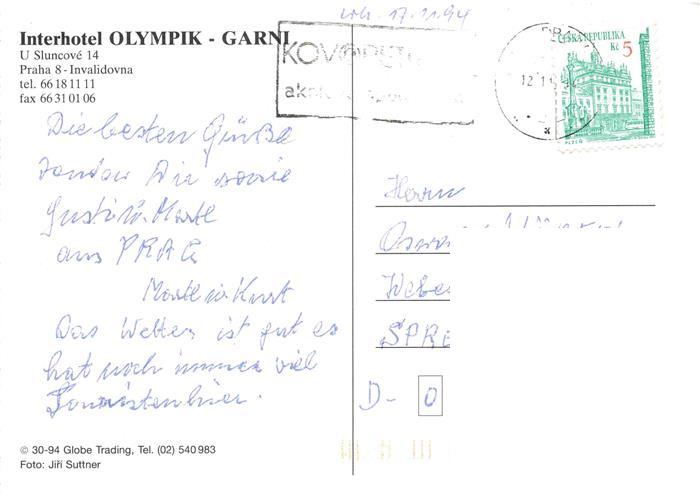 erh. 17.11.94
Interhotel OLYMPIK - GARNI
U Sluncové 14
Praha 8 - Invalidovna
tel. 66 18 11 11
fax 66 31 01 06
KOV
ak
ČESKÁ REPUBLIKA
Kč 5
PLZEŇ
Die besten Grüße
senden Dir sowie
Gusti u. Martl
aus PRAG
Martl u. Kurt
Das Wetter ist gut es
hat noch immer viel
Touristen hier.
Herrn
D- 0
© 30-94 Globe Trading, Tel. (02) 540 983
Foto: Jiří Suttner